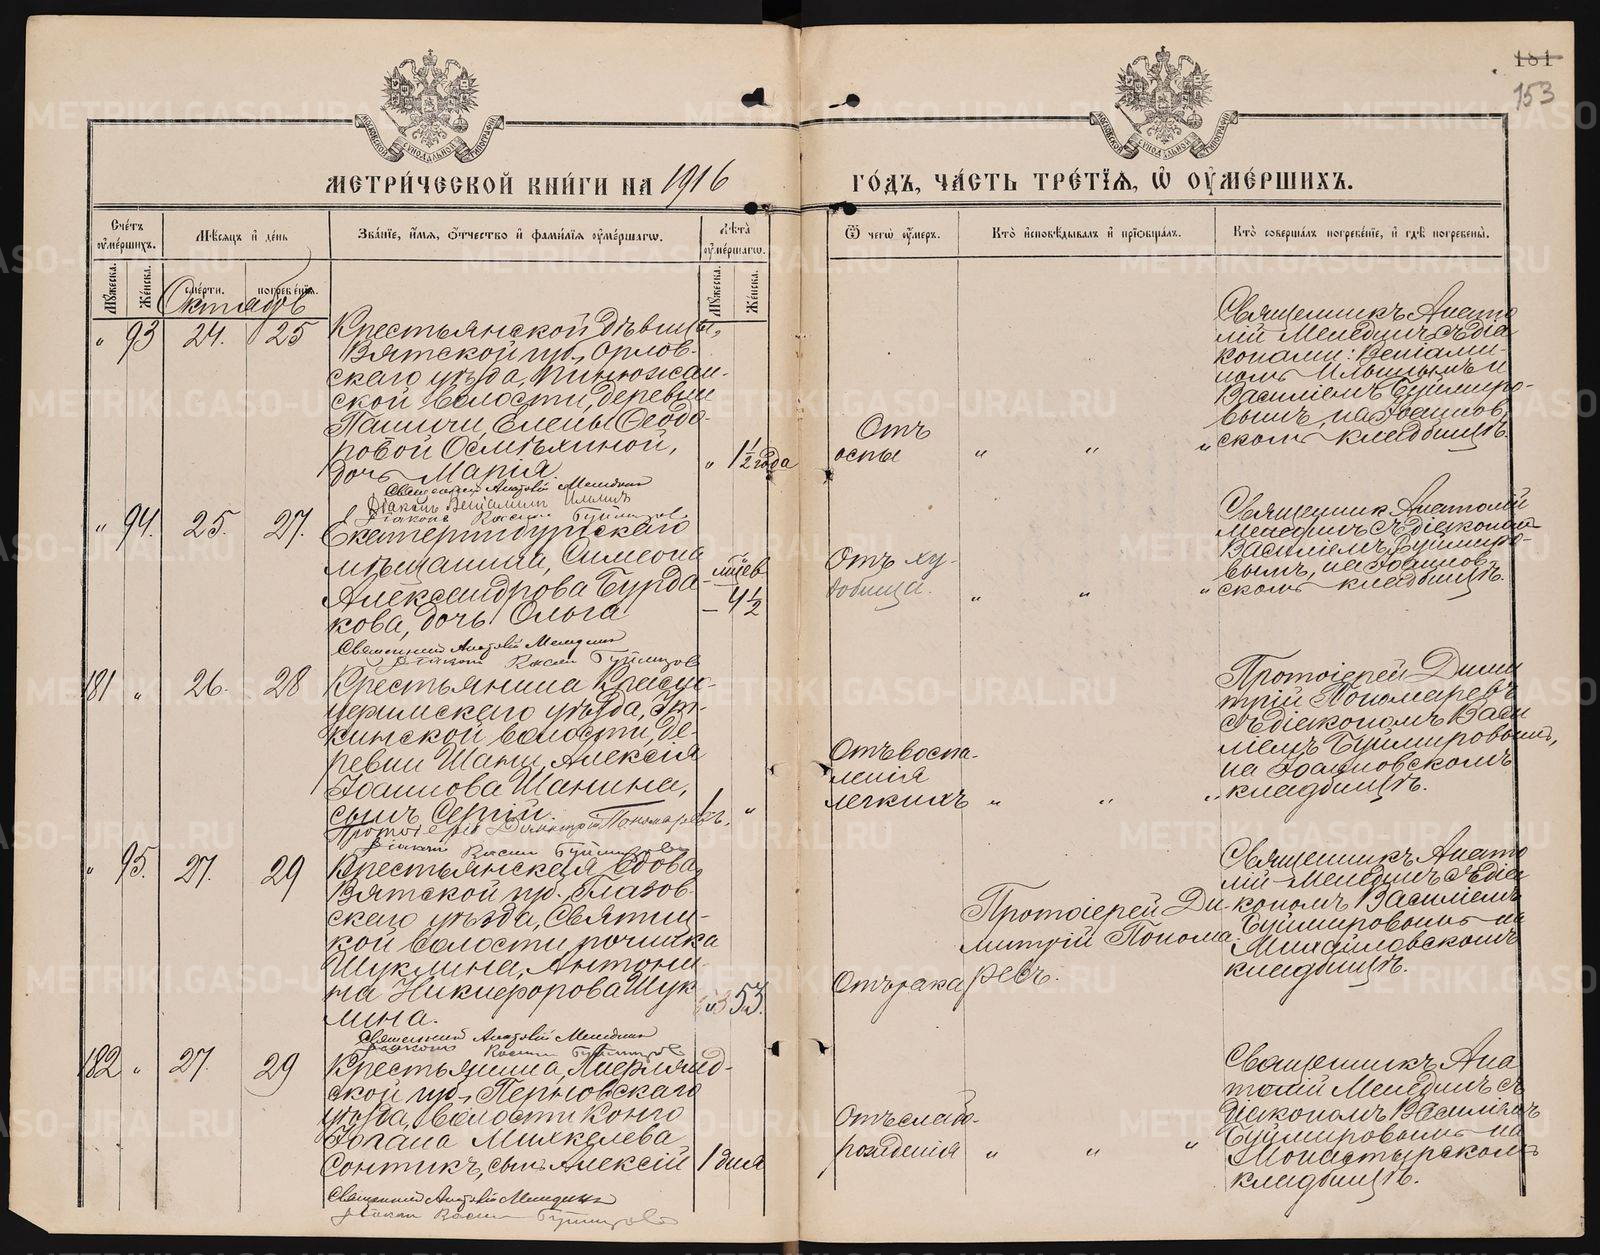 181
153
МЕТРИ́ЧЕСКОЙ КНИ́ГИ НА 1916
ГО́ДЪ, ЧА́СТЬ ТРЕ́ТЇѦ, Ѿ ОУМЕ́РШИХЪ.
Счетъ оумершихъ.
Мѣсяцъ и день
Званїе, имя, отчество и фамилїя оумершагѡ.
Лѣта оумершагѡ.
Ѿ чегѡ оумеръ.
Кто исповѣдывалъ и прїобщалъ.
Кто совершалъ погребенїе, и гдѣ погребены.
Мужеска.
Женска.
смерти.
погребенїя.
Мужеска.
Женска.
Октябрь
" 93 24. 25
Крестьянской дѣвицы,
Вятской губ., Орлов-
скаго уѣзда,
ской волости, деревни
Елены Ѳеодо-
ровой Осмѣхиной,
дочь Марія.
" 1½ года
Отъ
оспы
" " "
Священникъ Анато
лій Мелединъ съ діа
конами: Веніами-
номъ Ильинымъ и
Василіемъ Буймиро-
вымъ, на Іоаннов
скомъ кладбищѣ.
Священникъ Анатолій Мелединъ
Діаконъ Веніаминъ Ильинъ
Діаконъ Василій Буймировъ
" 94. 25. 27.
Екатеринбургскаго
мѣщанина, Симеона
Александрова Бурда-
кова, дочь Ольга
мцев
– 4½
Отъ ху-
добища.
" " "
Священник Анатолій
Мелединъ съ діаконом
Василіемъ Буймиро-
вымъ, на Іоаннов-
скомъ кладбищѣ.
Священникъ Анатолій Мелединъ
Діаконъ Василій Буймировъ
181 " 26. 28
Крестьянина Красно-
уфимскаго уѣзда,
кинской волости, де-
ревни Шани, Алексія
Іоаннова Шанина,
сынъ Сергій.
1 г. "
Отъ воспа-
ленія
легкихъ
" " "
Протоіерей Дими
трій Пономаревъ
съ діакономъ Васи
ліемъ Буймировымъ,
на Іоанновскомъ
кладбищѣ.
Протоіерей Димитрій Пономаревъ
Діаконъ Василій Буймировъ
" 95. 27. 29
Крестьянская вдова,
Вятской губ. Глазов-
скаго уѣзда, Святиц-
кой волости, починка
Шуклина, Антони-
на Никифорова Шук
лина.
53.
Отъ рака
Протоіерей Ди-
митрій Понома
ревъ.
Священникъ Анато
лій Мелединъ съ діа
кономъ Василіемъ
Буймировымъ на
Михайловскомъ
кладбищѣ.
Священникъ Анатолій Мелединъ
Діаконъ Василій Буймировъ
182 " 27. 29
Крестьянина, Лифлянд-
ской губ., Перновскаго
уѣзда, волости Конго
Іогана Михкелева
Сонтикъ, сынъ Алексій
1 дня
Отъ слабо-
рожденія
" " "
Священникъ Ана
толій Мелединъ съ
діакономъ Василіемъ
Буймировымъ на
Монастырскомъ
кладбищѣ.
Священникъ Анатолій Мелединъ
Діаконъ Василій Буймировъ
METRIKI.GASO-URAL.RU